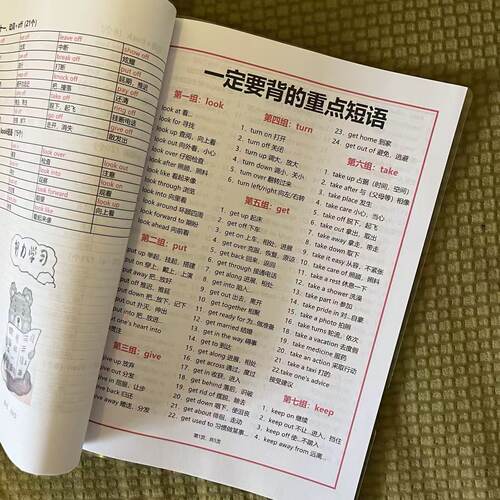 一定要背的重点短语
第一组: look
look at 看...
look for 寻找
look up 查阅, 向上看
look out 向外看, 小心
look over 仔细检查
look after 照顾, 照料
look like 看起来像
look through 浏览
look into 向里看
look around 环顾四周
look forward to 期盼
look ahead 向前看
第二组: put
put up 举起, 挂起, 搭建
put on 穿上, 戴上, 上演
put away 把...放好
put off 推迟, 推延
put down 把...放下, 记下
put out 扑灭, 伸出
put into 把...放进...
put one's heart into
倾注
第三组: give
give up 放弃
give out 分发
give in 屈服, 让步
give back 归还
give away 赠送, 分发
第四组: turn
1. turn on 打开
2. turn off 关闭
3. turn up 调大, 放大
4. turn down 调小, 关小
5. turn over 翻转过来
6. turn left/right 向左/右转
第五组: get
1. get up 起床
2. get off 下车
3. get on 上车, 相处, 进展
4. get over 克服, 恢复, 原谅
5. get back 回来, 返回
6. get through 接通电话
7. get along 进展, 相处
8. get into 陷入...
9. get out 出去, 离开
10. get together 相聚
11. get ready for 为...做准备
12. get married 结婚
13. get in the way 碍事
14. get to 到达
15. get along 进展, 相处
16. get across 通过, 度过
17. get in 收获, 进入
18. get behind 落后, 识破
19. get rid of 摆脱, 除去
20. get down 咽下, 使沮丧
21. get about 徘徊, 走动
22. get used to 习惯做某事...
23. get home 到家
24. get out of 避免, 逃避
第六组: take
1. take up 占据 (时间, 空间)
2. take after 与 (父母等) 相像
3. take place 发生
4. take care 小心, 当心
5. take off 脱下, 起飞
6. take out 拿出, 取出
7. take away 拿走, 带走
8. take down 取下
9. take it easy 从容, 不紧张
10. take care of 照顾, 照料
11. take a rest 休息一下
12. take a shower 洗澡
13. take part in 参加
14. take pride in 对...自豪
15. take a photo 拍照
16. take turns 轮流, 依次
17. take a vacation 去度假
18. take medicine 服药
19. take an action 采取行动
21. take a taxi 打的
22.take one's advice
接受建议
第七组: keep
1. keep on 继续
2. keep out 不让...进入, 挡住
3. keep off 使...不踏入
4. keep away from 远离...
show off
炫耀
put off
延期, 推迟
pay off
还清
ring off
挂断电话
give off
散发出
leave off
中断
break off
打断
knock off
look over
检查
look forward
look like
看起来像
look out
注意
look on
旁观
look up
向上看
努力学习